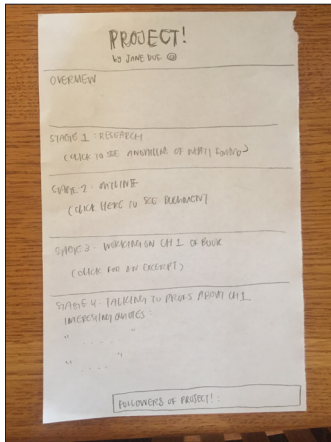 PROJECT!
by JANE DOE
OVERVIEW
STAGE 1: RESEARCH
(CLICK TO SEE OF
STAGE 2 - OUTLINE
(CLICK HERE TO SEE DOCUMENT)
STAGE 3 - WORKING ON CH 1 OF BOOK
(CLICK FOR AN EXCERPT)
STAGE 4 - TALKING TO PROFS ABOUT CH 1
INTERESTING QUOTES:
" . . . . "
" . . . . "
FOLLOWERS OF PROJECT! :